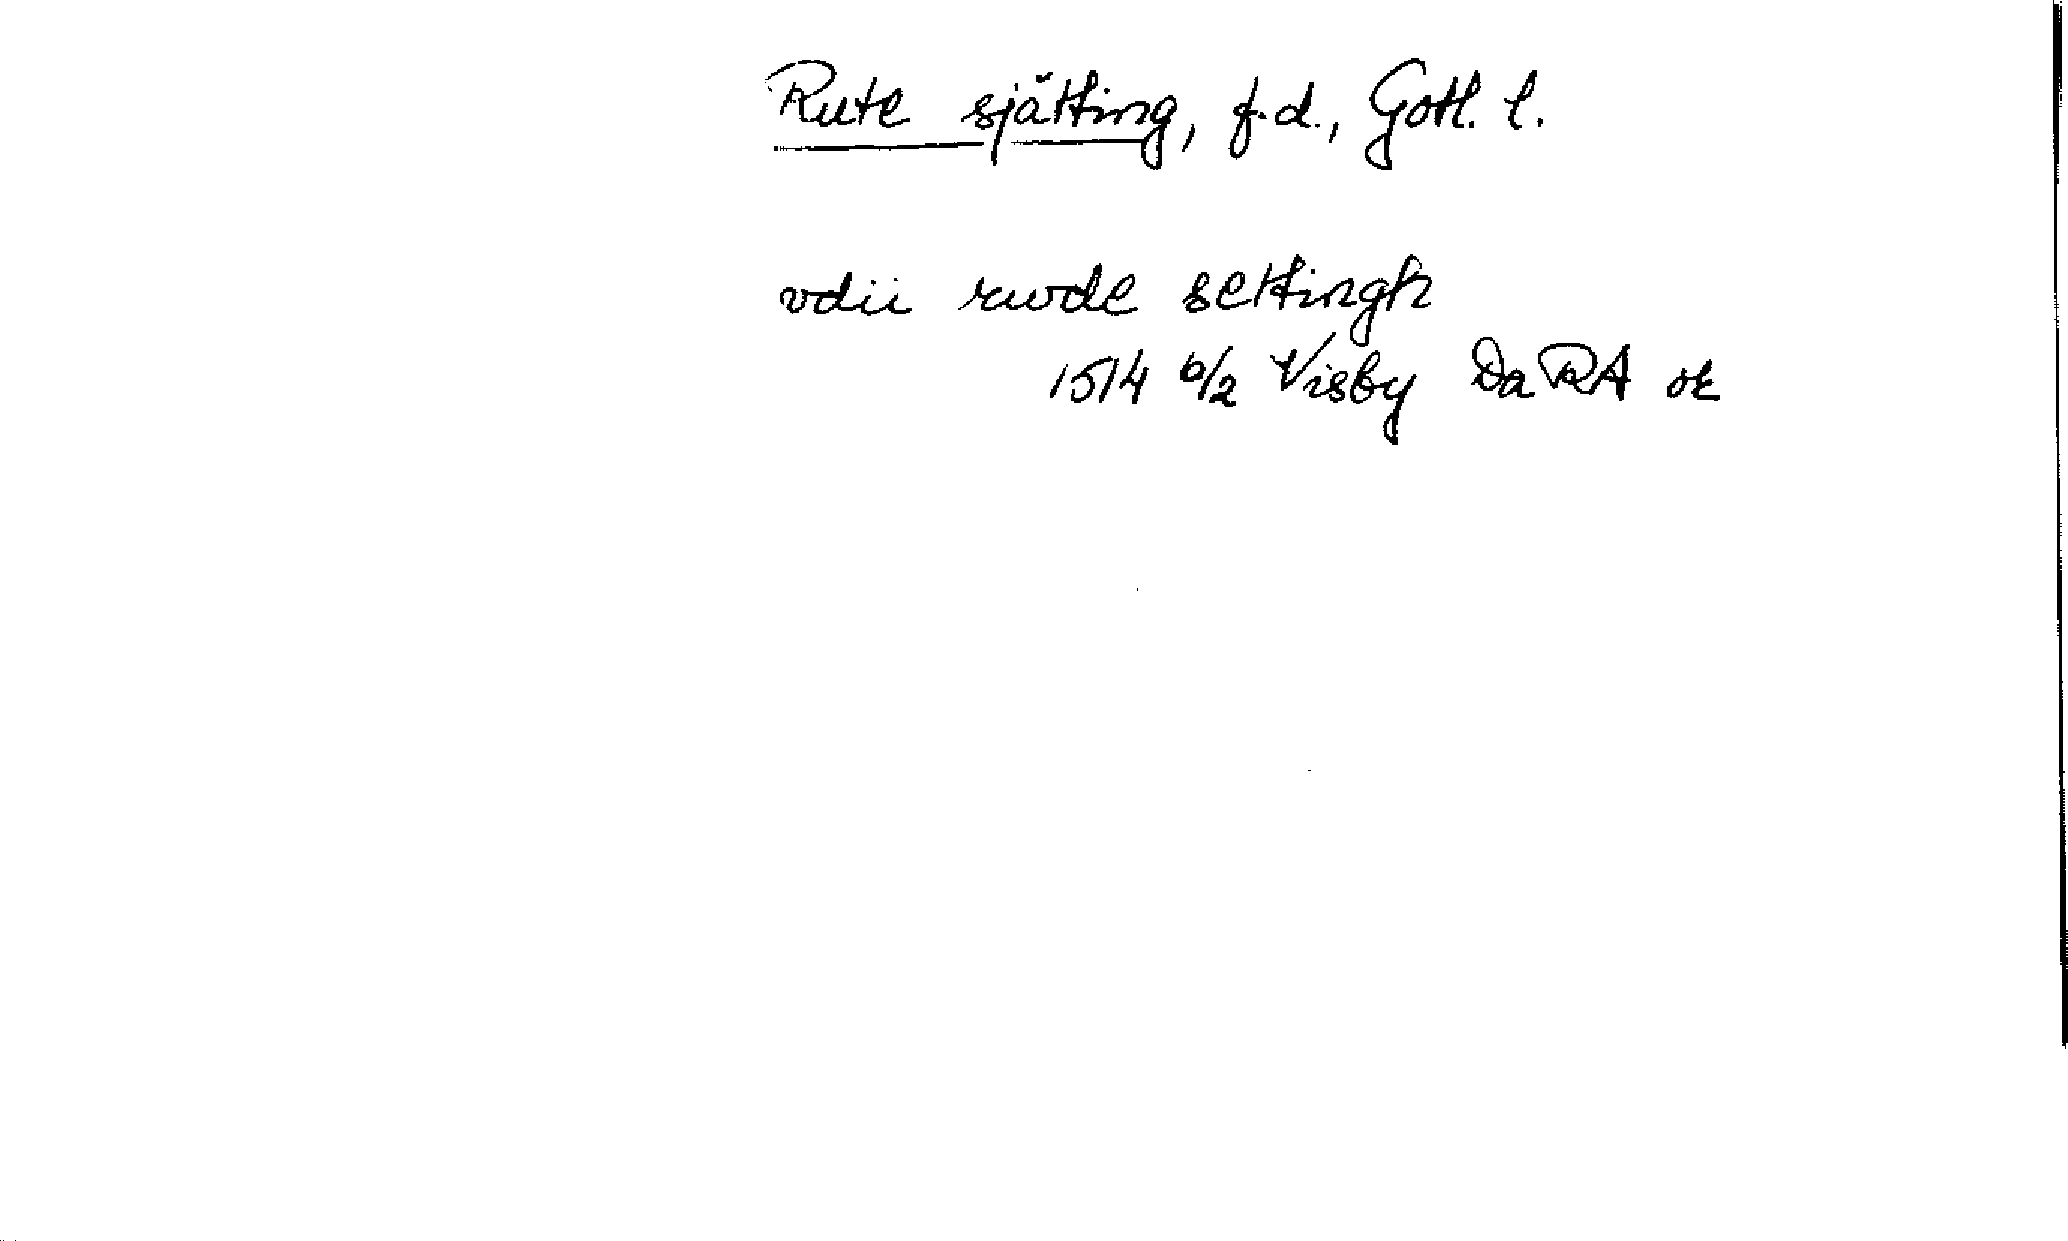 Rute sjätting, f.d., Gotl. l.
vdii rwde settingh
1514 6/2 Visby DaRA or